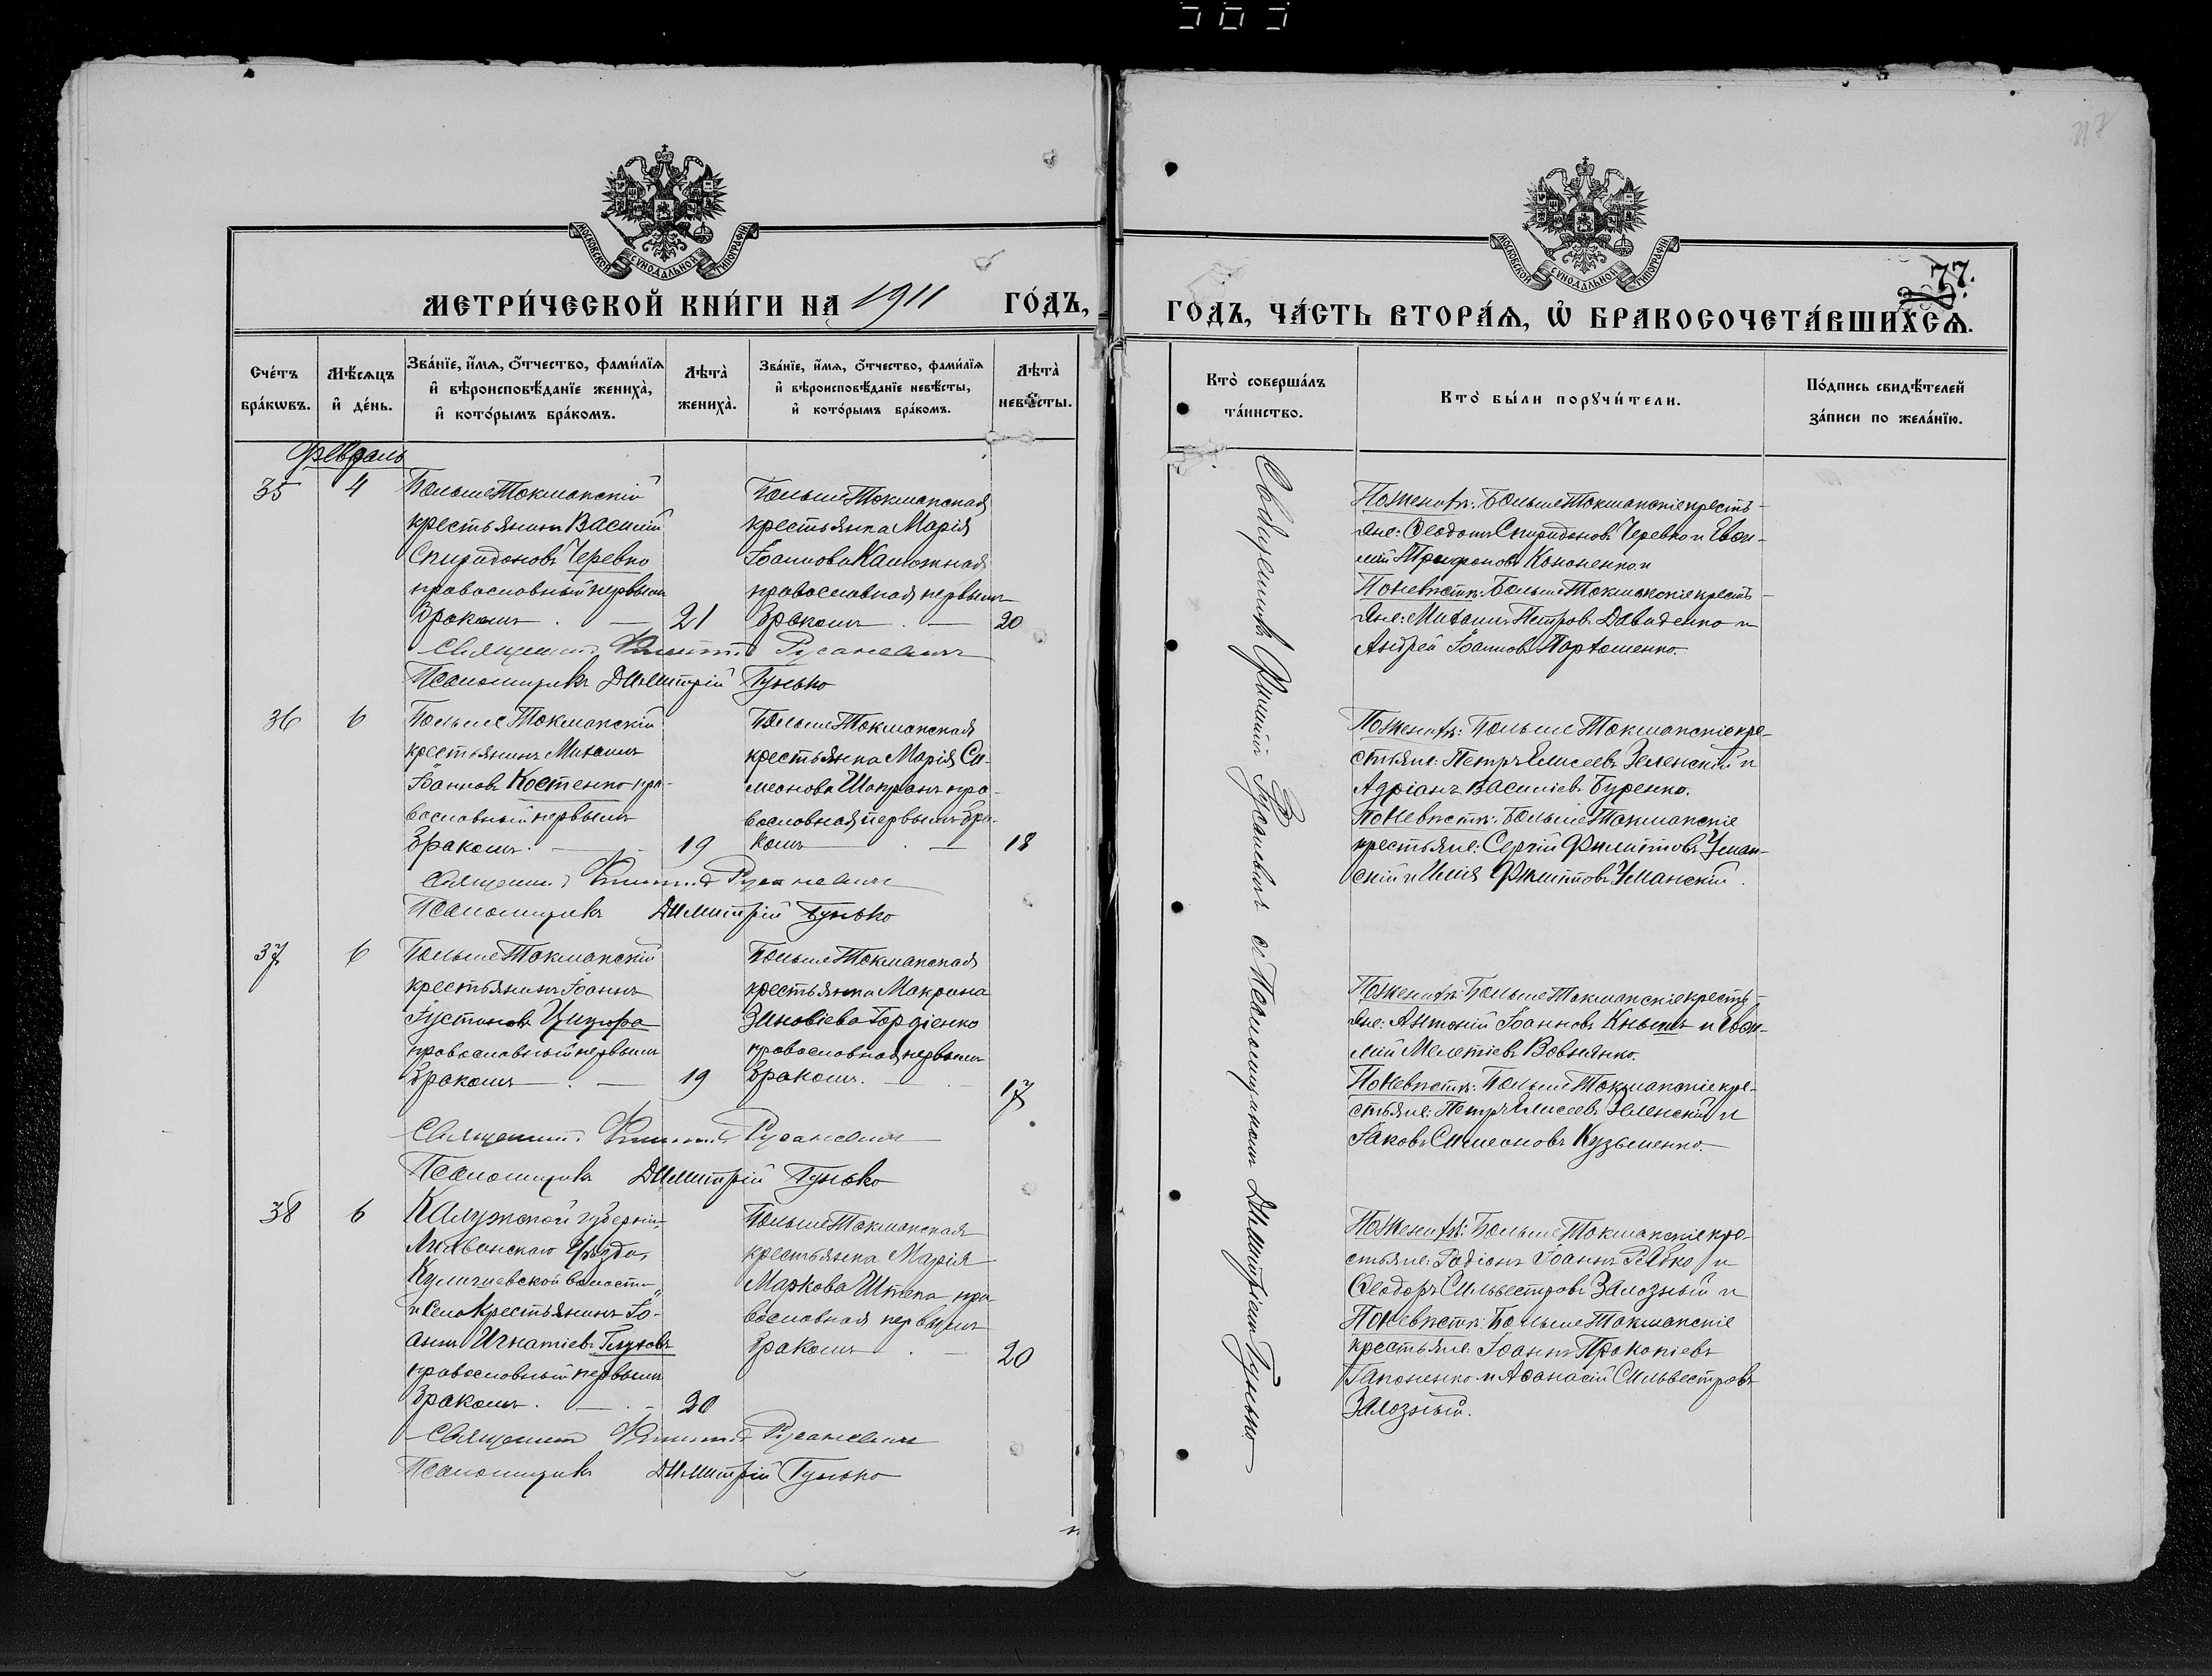 МОСКОВСКОЙ СѴНОДАЛЬНОЙ ТИПОГРАФІИ
МЕТРИ́ЧЕСКОЙ КНИ́ГИ НА 1911 ГО́ДЪ,
Сче́тъ бра́кѡвъ.
Мѣ́сяцъ и҆ де́нь.
Зва́нїе, и҆́мѧ, ѻ҆́тчество, фами́лїѧ и҆ вѣроисповѣ́данїе жениха̀, и҆ кото́рымъ бра́комъ.
Лѣта̀ жениха̀.
Зва́нїе, и҆́мѧ, ѻ҆́тчество, фами́лїѧ и҆ вѣроисповѣ́данїе невѣ́сты, и҆ кото́рымъ бра́комъ.
Лѣта̀ невѣ́сты.
Февраль
35
4
БольшеТокмакскій
крестьянинъ Василій
Спиридоновъ Черевко
православный первымъ
бракомъ. — 21
БольшеТокмакская
крестьянка Марія
Іоаннова Калюжная
православная первымъ
бракомъ. — 20
Священникъ Филиппъ Русаневичъ
Псаломщикъ Димитрій Гунько
36
6
БольшеТокмакскій
крестьянинъ Михаилъ
Іоанновъ Костенко пра-
вославный первымъ
бракомъ. — 19
БольшеТокмакская
крестьянка Марія Си-
меонова Шапранъ пра-
вославная первымъ бра-
комъ — 18
Священникъ Филиппъ Русаневичъ
Псаломщикъ Димитрій Гунько
37
6
БольшеТокмакскій
крестьянинъ Іоаннъ
Іустиновъ Цицюра
православный первымъ
бракомъ — 19
БольшеТокмакская
крестьянка Макрина
Зиновіева Гордіенко
православная первымъ
бракомъ. — 17
Священникъ Филиппъ Русаневичъ
Псаломщикъ Димитрій Гунько
38
6
Калужской губерніи,
Лихвинскаго уѣзда,
волости
и села крестьянинъ Іо-
аннъ Игнатіевъ Глуховъ
православный первымъ
бракомъ. — 20
БольшеТокмакская
крестьянка Марія
Маркова Штепа пра-
вославная первымъ
бракомъ. — 20
Священникъ Филиппъ Русаневичъ
Псаломщикъ Димитрій Гунько
МОСКОВСКОЙ СѴНОДАЛЬНОЙ ТИПОГРАФІИ
77.
ГОДЪ, ЧА́СТЬ ВТОРА́Ѧ, Ѡ҆ БРАКОСОЧЕТА́ВШИХСѦ.
Кто̀ соверша́лъ та́инство.
Кто̀ бы́ли порꙋчи́тели.
По́дпись свидѣ́телей за́писи по жела́нїю.
Священникъ Филиппъ Русаневичъ съ Псаломщикомъ Димитріемъ Гунько
По женихѣ: БольшеТокмакскіе кресть-
яне: Ѳеодотъ Спиридоновъ Черевко и Евѳи-
мій Трифоновъ Кононенко и
По невѣстѣ: БольшеТокмакскіе кресть-
яне: Михаилъ Петровъ Давиденко и
Андрей Іоанновъ Портошенко.
По женихѣ: БольшеТокмакскіе кре-
стьяне: Петръ Елисеевъ Зеленскій и
Адріанъ Василіевъ Буренко.
По невѣстѣ: БольшеТокмакскіе
крестьяне: Сергій Филипповъ Уман-
скій и Илія Филипповъ Уманскій.
По женихѣ: БольшеТокмакскіе кресть-
яне: Антоній Іоанновъ Кнышъ и Евѳи-
мій Мелетіевъ Вовнянко.
По невѣстѣ: БольшеТокмакскіе кре-
стьяне: Петръ Елисеевъ Зеленскій и
Іаковъ Симеоновъ Кузьменко.
По женихѣ: БольшеТокмакскіе кре-
стьяне: Родіонъ Іоанновъ Рябко и
Ѳеодоръ Сильвестровъ Залозный и
По невѣстѣ: БольшеТокмакскіе
крестьяне: Іоаннъ Прокопіевъ
Гапоненко и Аѳанасій Сильвестровъ
Залозный.